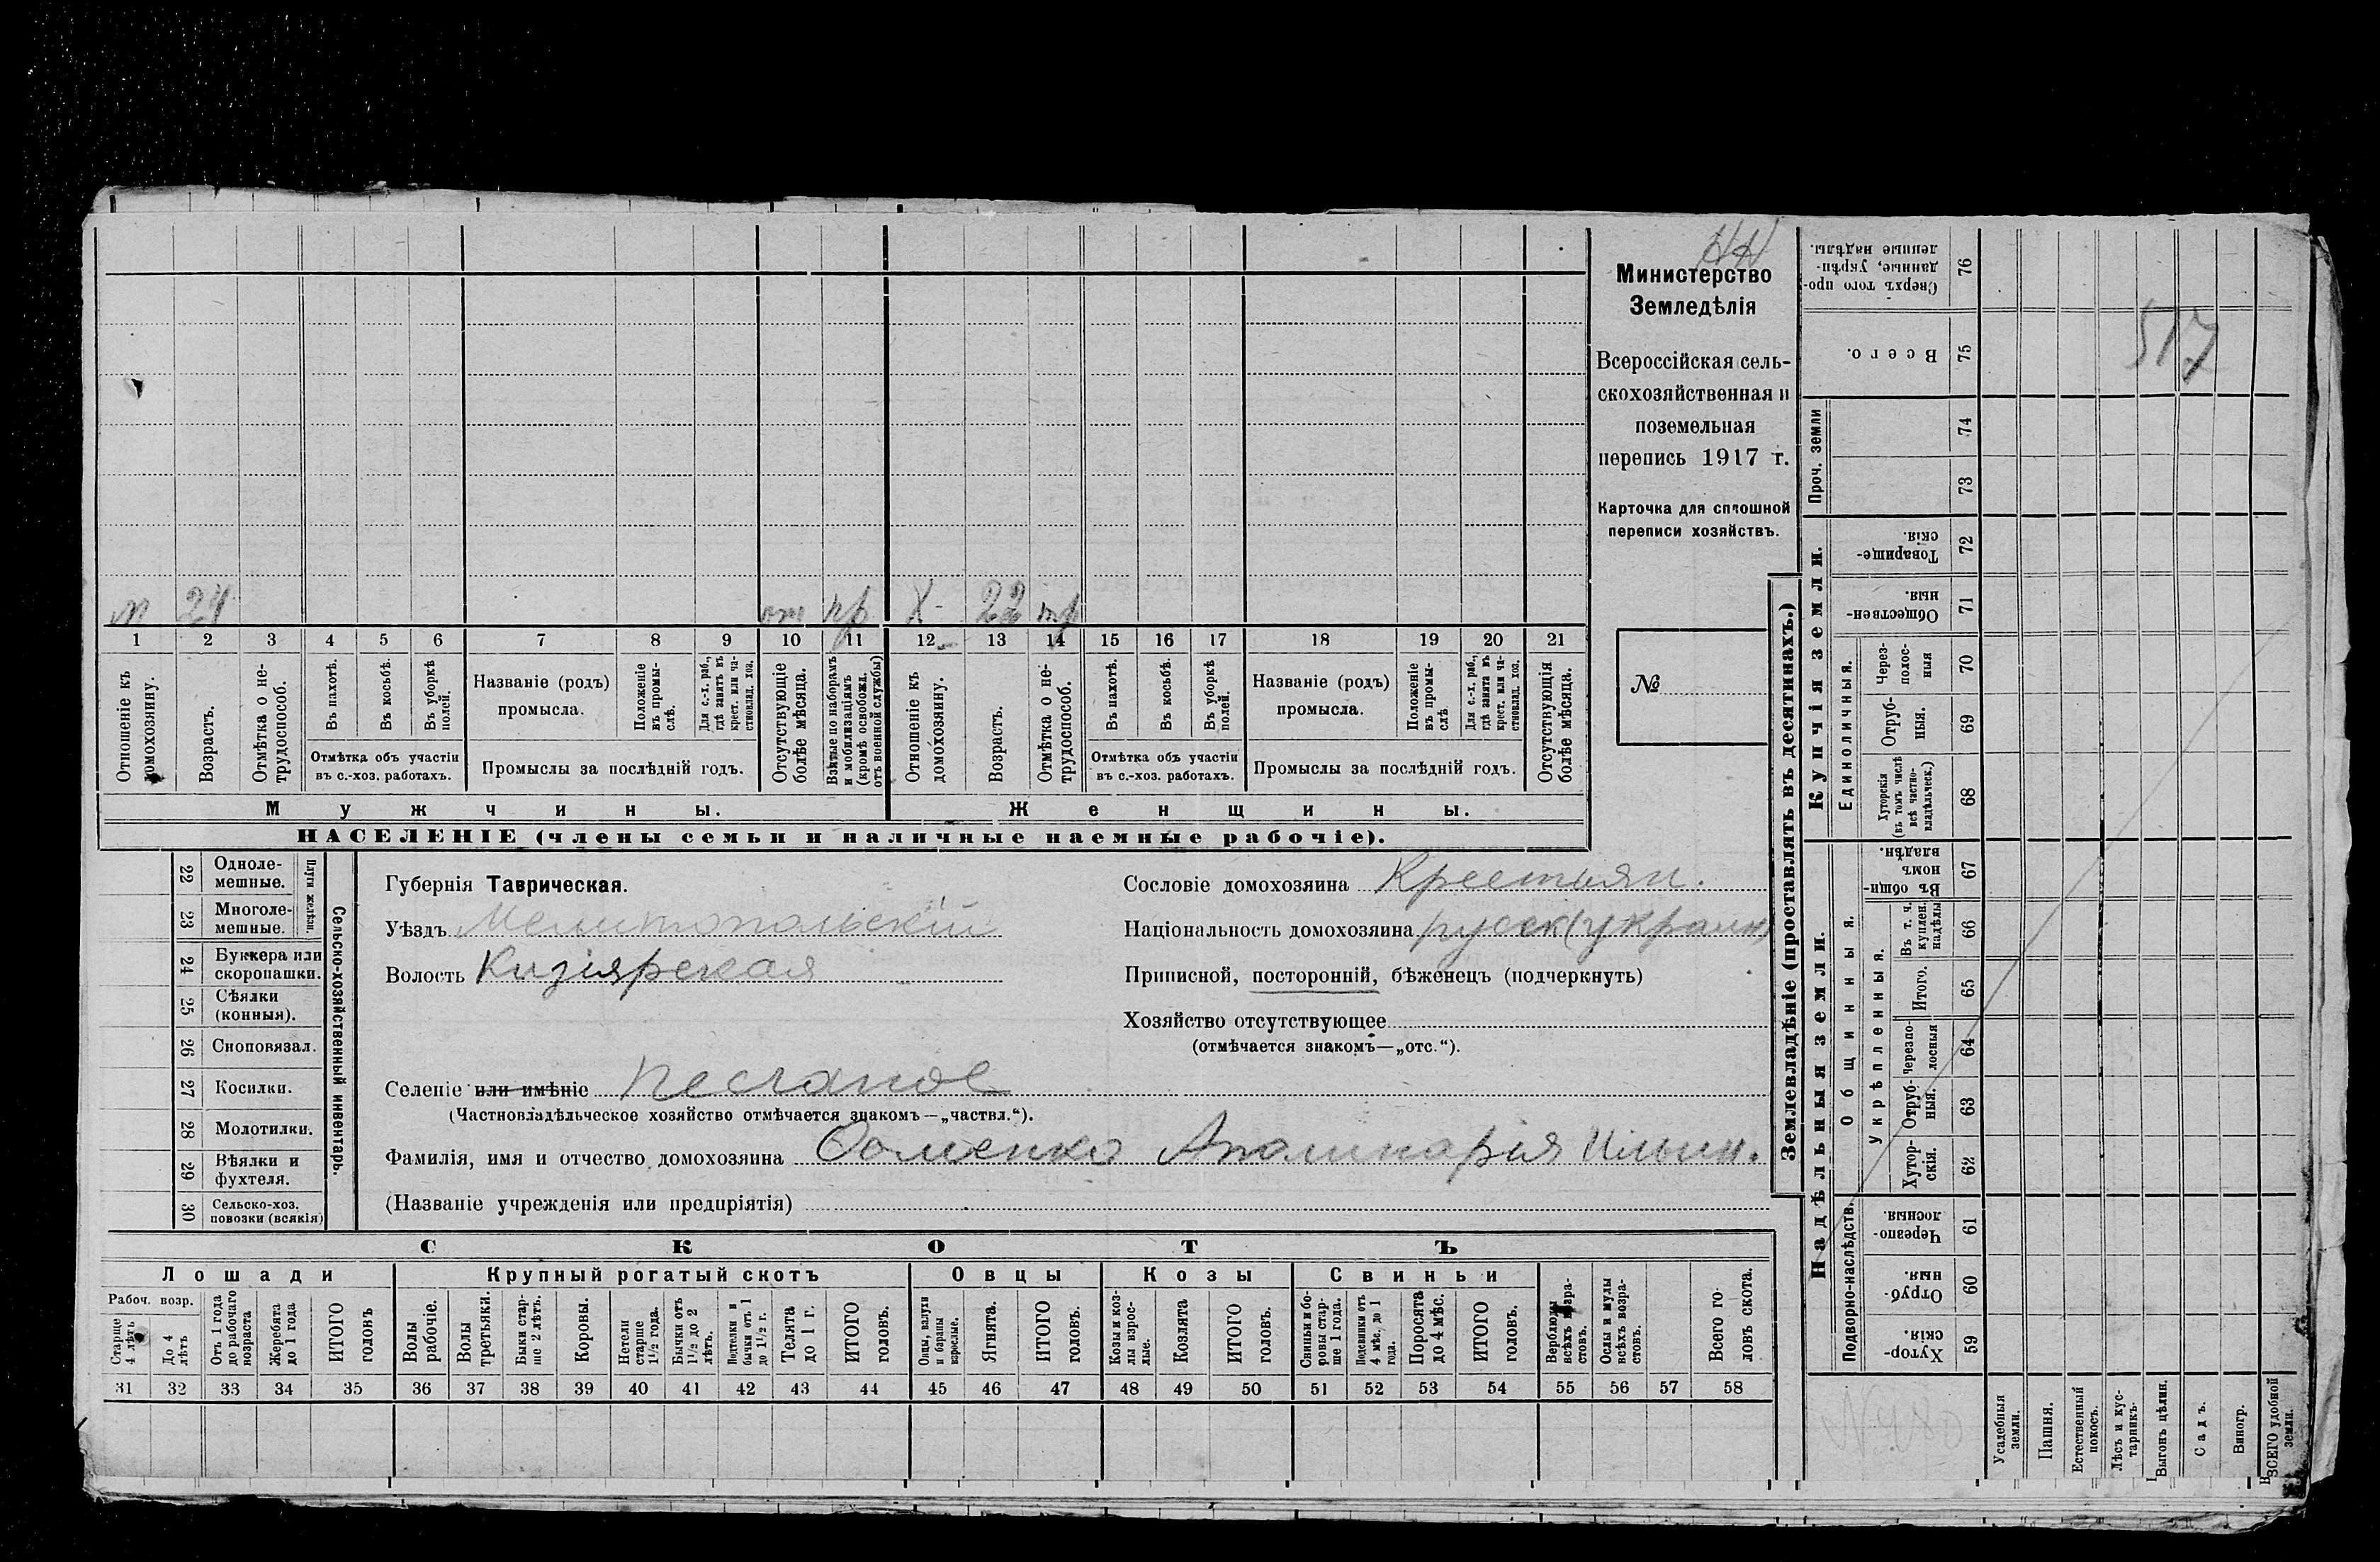 НН
Министерство
Земледѣлія
Всероссійская сель-
скохозяйственная и
поземельная
перепись 1917 г.
Карточка для сплошной
переписи хозяйствъ.
№
м 24 от пр Х 22 тр
1 2 3 4 5 6 7 8 9 10 11 12 13 14 15 16 17 18 19 20 21
Отношеніе къ домохозяину.
Возрастъ.
Отмѣтка о не-трудоспособ.
Въ пахотѣ.
Въ косьбѣ.
Въ уборкѣ полей.
Отмѣтка объ участіи
въ с.-хоз. работахъ.
Названіе (родъ)
промысла.
Положеніе въ промы-слѣ.
Для с.-х. раб., гдѣ занятъ въ крест. или ча-стновлад. хоз.
Промыслы за послѣдній годъ.
Отсутствующіе болѣе мѣсяца.
Взятые по наборамъ и мобилизаціямъ (кромѣ освобожд. отъ военной службы)
Отношеніе къ домохозяину.
Возрастъ.
Отмѣтка о не-трудоспособ.
Въ пахотѣ.
Въ косьбѣ.
Въ уборкѣ полей.
Отмѣтка объ участіи
въ с.-хоз. работахъ.
Названіе (родъ)
промысла.
Положеніе въ промы-слѣ
Для с.-х. раб., гдѣ занята въ крест. или ча-стновлад. хоз.
Промыслы за послѣдній годъ.
Отсутствующія болѣе мѣсяца.
Мужчины.
Женщины.
НАСЕЛЕНІЕ (члены семьи и наличные наемные рабочіе).
22 Одноле-мешные.
23 Многоле-мешные.
Плуги желѣзн.
24 Буккера или скоропашки.
25 Сѣялки (конныя).
26 Сноповязал.
27 Косилки.
28 Молотилки.
29 Вѣялки и фухтеля.
30 Сельско-хоз. повозки (всякія)
Сельско-хозяйственный инвентарь.
Губернія Таврическая.
Уѣздъ Мелитопольскій
Волость Кизіярская
Селеніе или имѣніе Песчаное
(Частновладѣльческое хозяйство отмѣчается знакомъ—„частвл.“).
Фамилія, имя и отчество домохозяина Фоменко Аполинарія Ильин.
(Названіе учрежденія или предпріятія)
Сословіе домохозяина Крестьян.
Національность домохозяина русск(украин)
Приписной, посторонній, бѣженецъ (подчеркнуть)
Хозяйство отсутствующее
(отмѣчается знакомъ—„отс.“).
СКОТЪ
Лошади
Крупный рогатый скотъ
Овцы
Козы
Свиньи
Рабоч. возр.
Старше 4 лѣтъ
До 4 лѣтъ
Отъ 1 года до рабочаго возраста
Жеребята до 1 года
ИТОГО головъ
Волы рабочіе.
Волы третьяки.
Быки стар-ше 2 лѣтъ.
Коровы.
Нетели старше 1½ года.
Бычки отъ 1½ до 2 лѣтъ.
Подтелки и бычки отъ 1 до 1½ г.
Телята до 1 г.
ИТОГО головъ.
Овцы, валухи и бараны взрослые.
Ягнята.
ИТОГО головъ.
Козы и коз-лы взрос-лые.
Козлята
ИТОГО головъ.
Свиньи и бо-ровы стар-ше 1 года.
Подсвинки отъ 4 мѣс. до 1 года.
Поросята до 4 мѣс.
ИТОГО головъ.
Верблюды всѣхъ возра-стовъ.
Ослы и мулы всѣхъ возра-стовъ.
Всего го-ловъ скота.
31 32 33 34 35 36 37 38 39 40 41 42 43 44 45 46 47 48 49 50 51 52 53 54 55 56 57 58
Землевладѣніе (проставлять въ десятинахъ.)
Сверхъ того про-данные, укрѣп-ленные надѣлы. 76
Всего. 75
517
Проч. земли
74
73
Купчія земли.
Товарище-скія. 72
Обществен-ныя. 71
Единоличныя.
Через-полос-ныя 70
Отруб-ныя. 69
Хуторскія (въ томъ числѣ всѣ частно-владѣльческ.) 68
Надѣльныя земли.
Общинныя.
Въ общи-номъ владѣн. 67
Укрѣпленныя.
Въ т. ч. куплен. надѣлы 66
Итого. 65
черезпо-лосныя 64
Отруб-ныя. 63
Хутор-скія. 62
Подворно-наслѣдств.
Черезпо-лосныя. 61
Отруб-ныя. 60
Хутор-скія. 59
Усадебныя земли.
Пашня.
Естественный покосъ.
Лѣсъ и кус-тарникъ.
Выгонъ цѣлин.
Садъ.
Виногр.
ВСЕГО удобной земли.